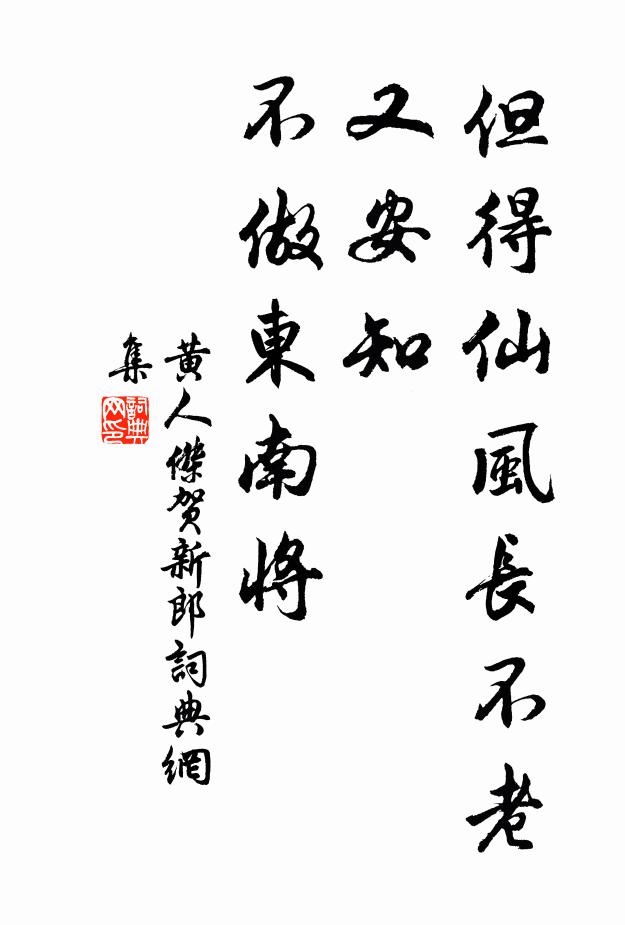 但得仙風長不老
又安知
不做東南將
黄人傑賀新郎詞典網
集
詞典
网印